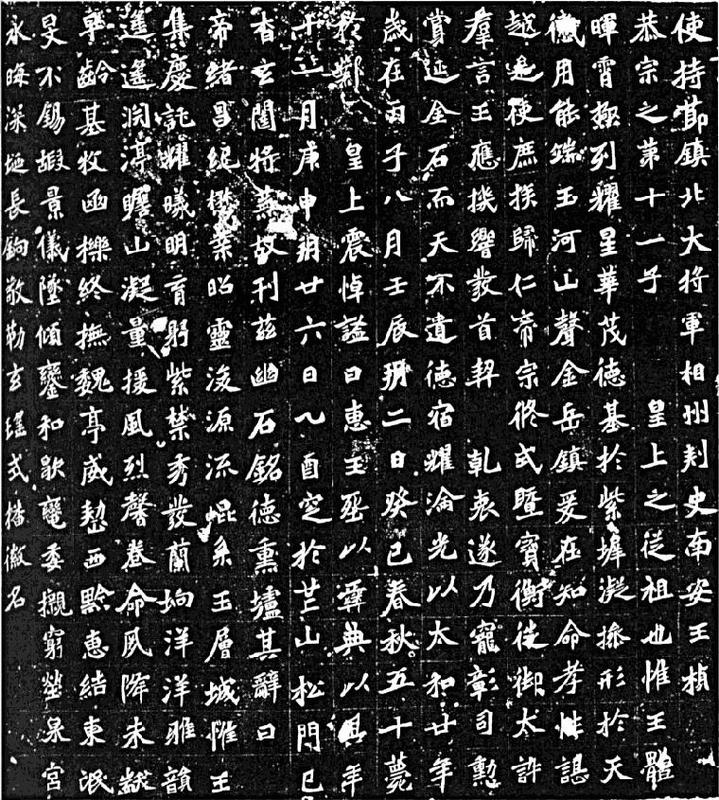 使持節鎮北大將軍相州刾史南安王楨
恭宗之第十一子 皇上之從祖也惟王體
暉霄極列耀星華茂德基於紫墀凝操形於天
用能端玉河山聲金岳鎮爰在知命孝性諶
越是使庶族歸仁帝宗攸式暨寶衡徙御太訃
羣言王應機響發首契 乹衷遂乃寵彰司勳
賞延金石而天不遺德宿耀淪光以太和廿年
歲在丙子八月壬辰朔二日癸巳春秋五十薨
於鄴 皇上震悼諡曰惠王塟以彝典以其年
十一月庚申朔廿六日乙酉窆於芒山松門已
杳玄闥將蕪故刊茲幽石銘德熏壚其辭曰
帝緒昌紀懋業昭靈浚源流崐系玉層城惟王
集慶託耀曦明育躬紫禁秀發蘭坰洋洋雅韻
遙遙淵渟瞻山凝量援風烈馨卷命夙降未黻
早齡基牧函櫟終撫魏亭威整西黔惠結東氓
旻不錫嘏景儀墜傾鑾和歇轡委櫬窮塋泉宮
永晦深埏長扃敬勒玄瑤式播徽名